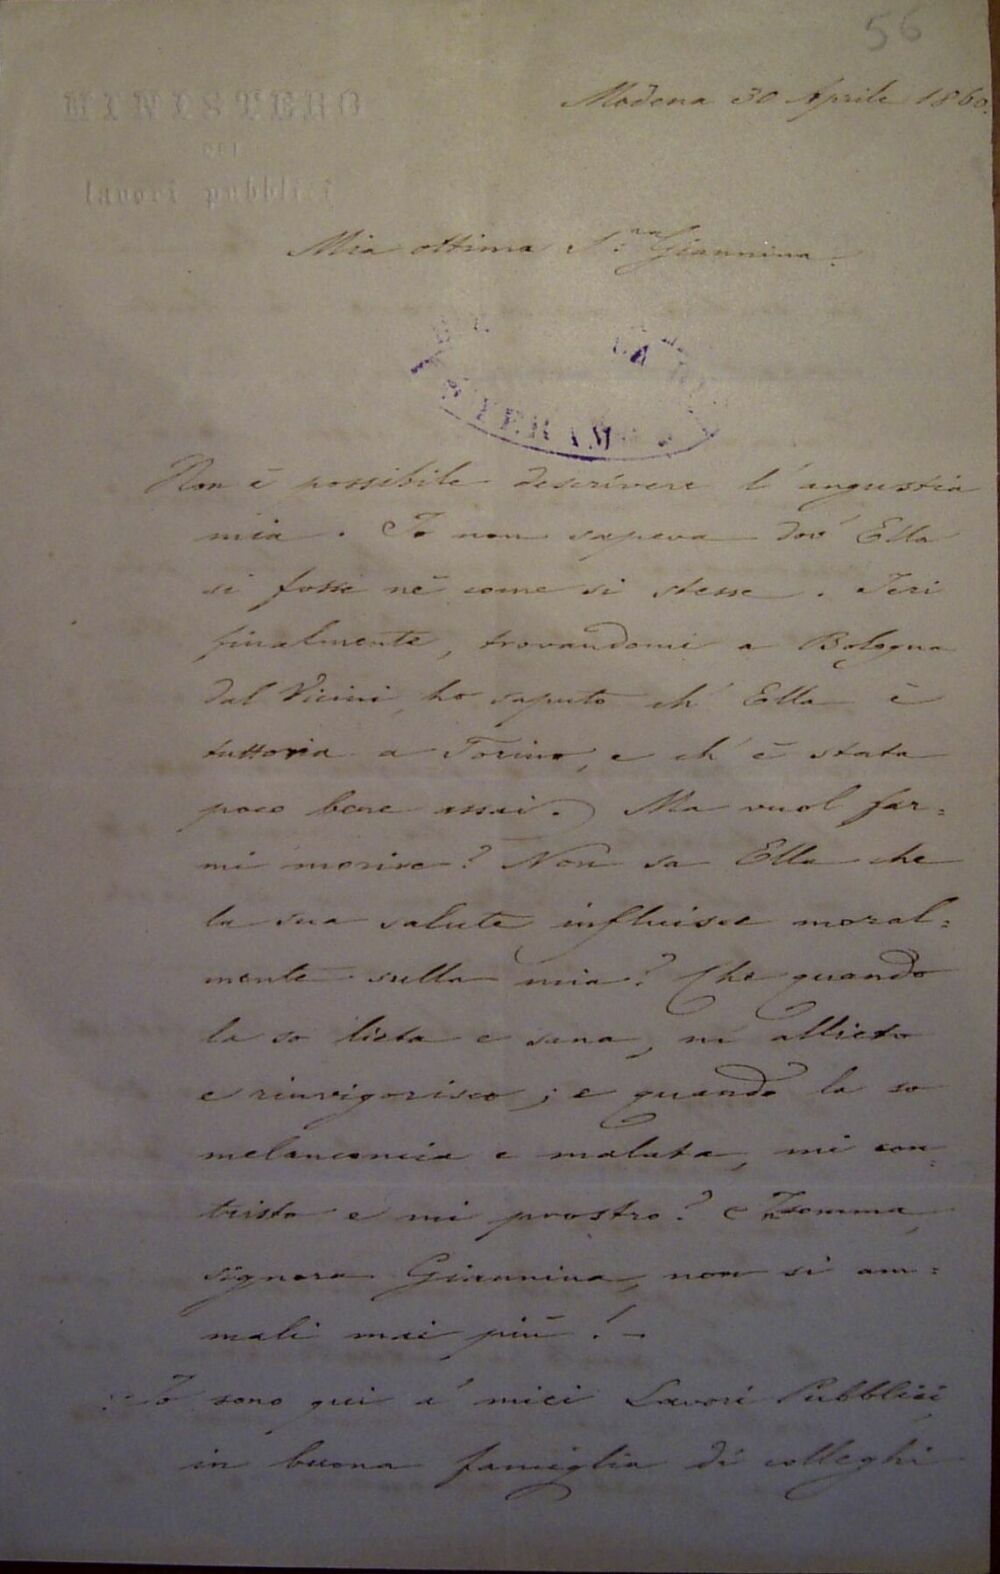 56
MINISTERO
DEI
lavori pubblici
Modena 30 Aprile 1860.
Mia ottima S.ra Giannina.
INTERAM
Non è possibile descrivere l'angustia
mia. Io non sapeva dov'Ella
si fosse nè come si stesse. Ieri
finalmente, trovandomi a Bologna
dal Vicini, ho saputo ch'Ella è
tuttovia a Torino, e ch'è stata
poco bene assai. Ma vuol far=
mi morire? Non sa Ella che
la sua salute influisce moral=
mente sulla mia? Che quando
la so lieta e sana, m'allieto
e rinvigorisco; e quando la so
melanconica e malata, mi con
tristo e mi prostro?
signora Giannina, non si am=
mali mai più! –
Io sono qui a' miei Lavori Pubblici
in buona famiglia di colleghi